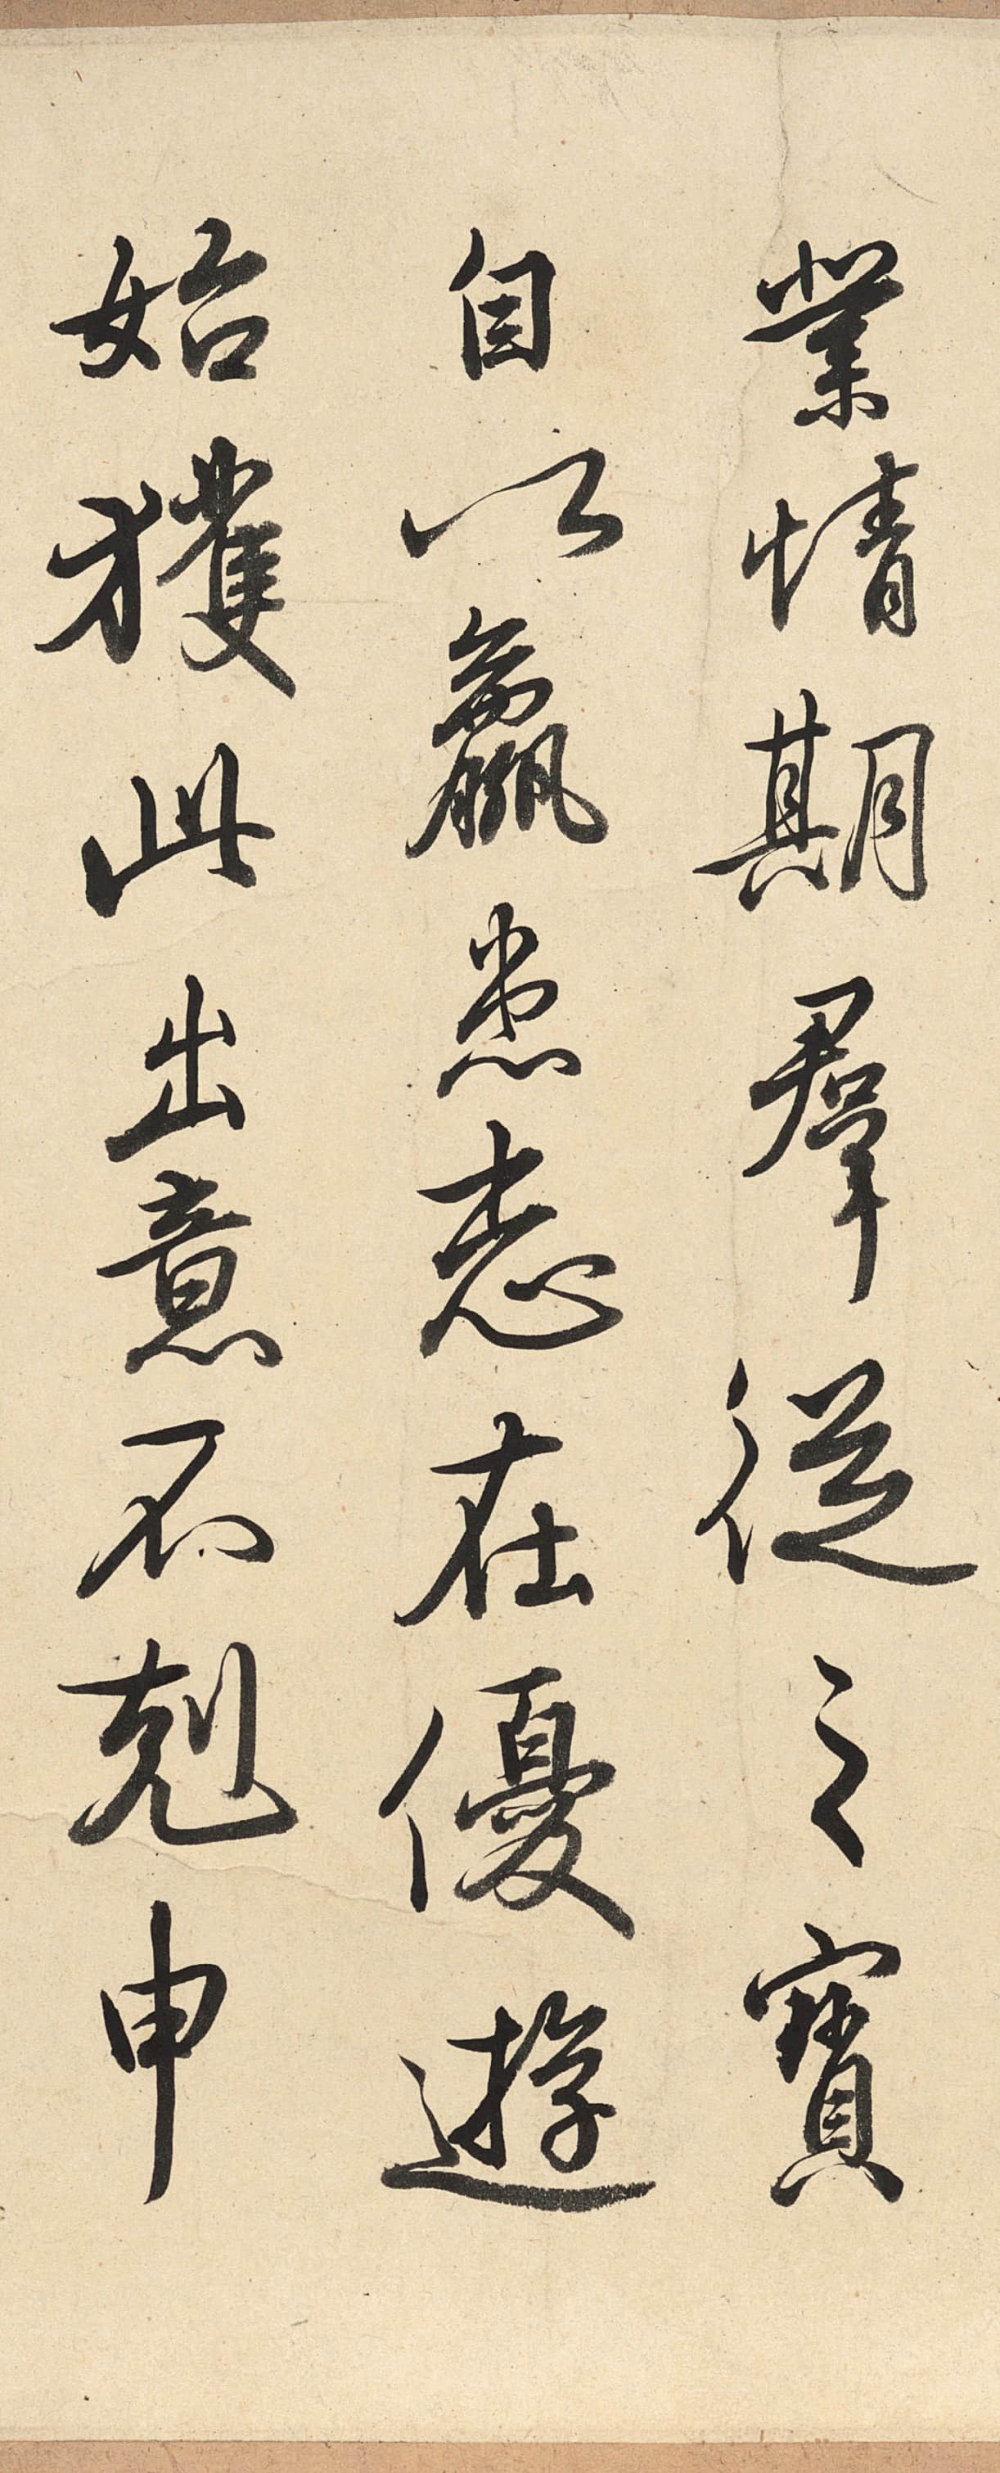 業情期羣從之寶
自以羸患志在優遊
始獲此出意不剋申